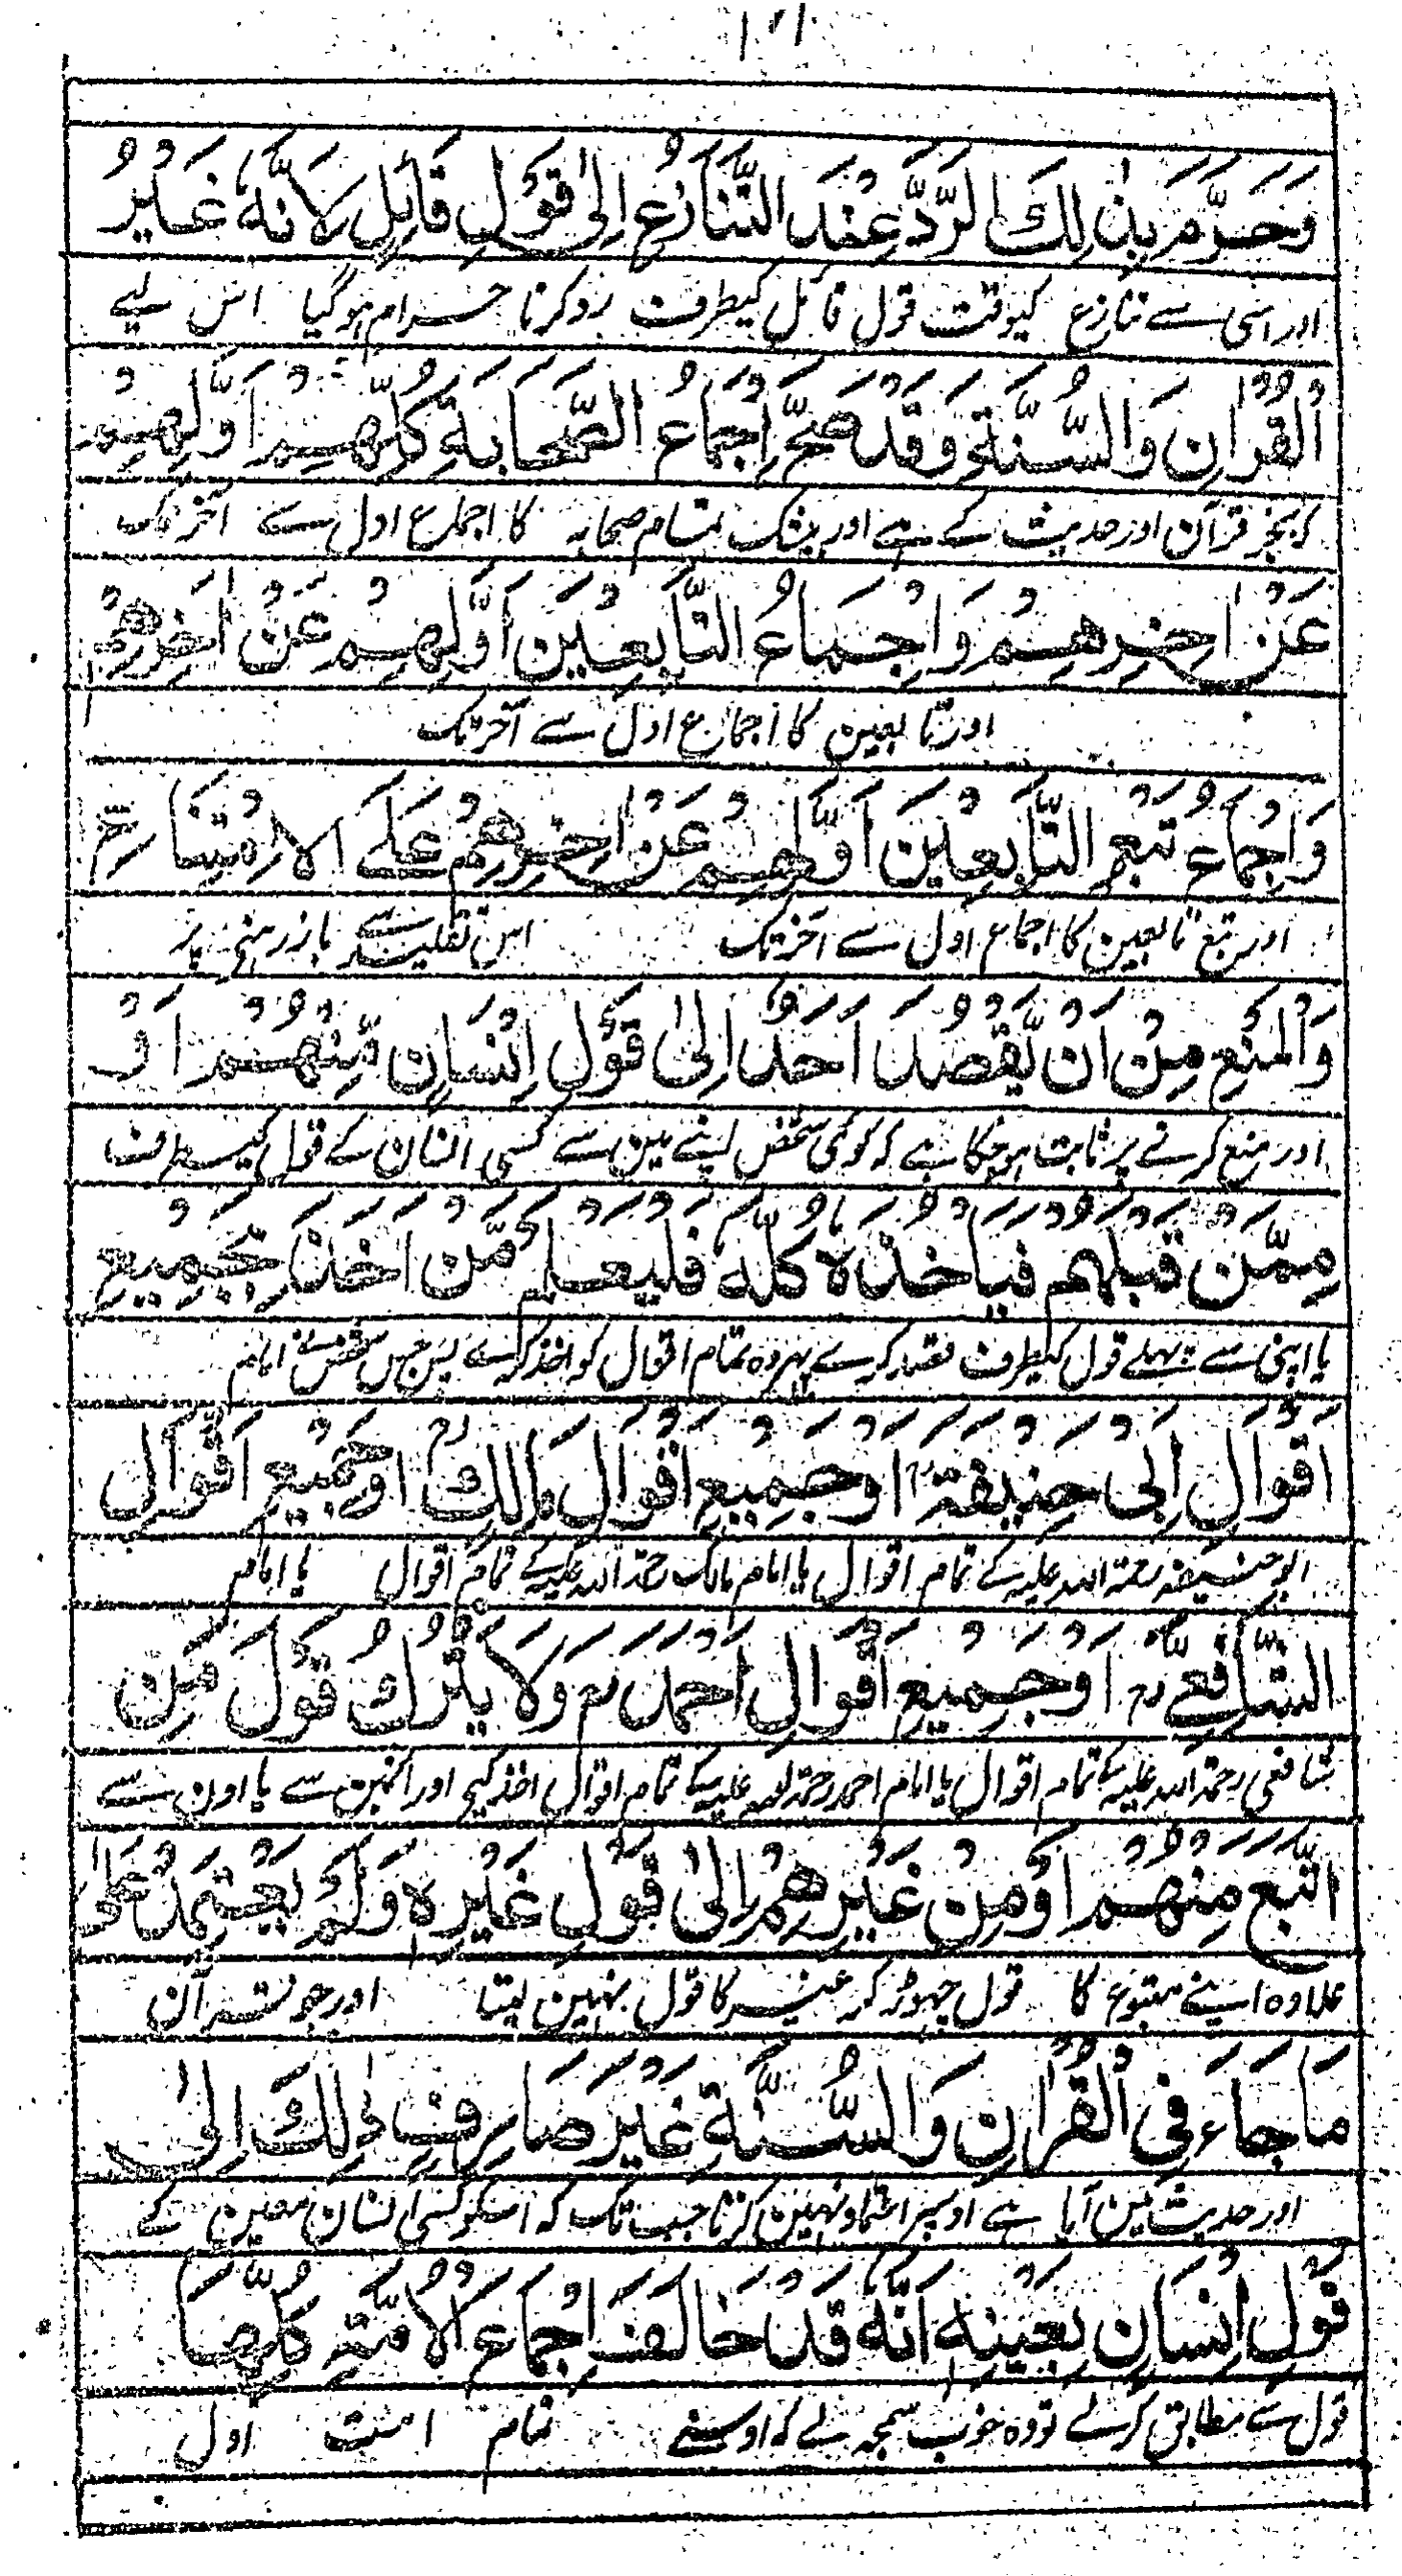 وَحَرَّمَ بِذٰلِكَ الرَّدَّ عِنْدَ التَّنَازُعِ اِلٰى قَوْلِ قَائِلٍ لِاَنَّهٗ غَيْرُ
اور اسی سے تنازع کیوقت قول قائل کیطرف رد کرنا حرام ہو گیا اس لیے
الْقُرْاٰنِ وَالسُّنَّةِ وَقَدْ صَحَّ اِجْمَاعُ الصَّحَابَةِ كُلِّهِمْ اَوَّلِهِمْ
کہ بجز قرآن اور حدیث کے ہے اور بیشک تمام صحابہ کا اجماع اول سے آخر تک
عَنْ اٰخِرِهِمْ وَاِجْمَاعُ التَّابِعِيْنَ اَوَّلِهِمْ عَنْ اٰخِرِهِمْ
اور تابعین کا اجماع اول سے آخر تک
وَاِجْمَاعُ تَبْعِ التَّابِعِيْنَ اَوَّلِهِمْ عَنْ اٰخِرِهِمْ عَلَى الْاِمْتِنَاعِ
اور تبع تابعین کا اجماع اول سے آخر تک اس تقلید سے باز رہنی پر
وَالْمَنْعِ مِنْ اَنْ يَّقْصُدَ اَحَدٌ اِلٰى قَوْلِ اِنْسَانٍ مِّنْهُمْ اَوْ
اور منع کرنے پر ثابت ہو چکا ہے کہ کوئی شخص اپنے مین سے کسی انسان کے قول کیطرف
مِمَّنْ قَبْلَهُمْ فَيَاْخُذُهٗ كُلَّهٗ فَلْيَعْلَمْ مَّنْ اَخَذَ بِجَمِيْعِ
یا اپنی سے پہلے قول کیطرف قصد کرے پہر وہ تمام اقوال کو اخذ کرلے پس جس شخص نے امام
اَقْوَالِ اَبِىْ حَنِيْفَةَ اَوْ جَمِيْعِ اَقْوَالِ مَالِكٍ اَوْ جَمِيْعِ اَقْوَالِ
ابو حنیفہ رحمۃ اللہ علیہ کے تمام اقوال یا امام مالک رحمۃ اللہ علیہ کے تمام اقوال یا امام
الشَّافِعِيِّ اَوْ جَمِيْعِ اَقْوَالِ اَحْمَدَ وَلَا يَتْرُكُ قَوْلَ مَنِ
شافعی رحمۃ اللہ علیہ کے تمام اقوال یا امام احمد رحمۃ اللہ علیہ کے تمام اقوال اخذ کیے اور انہین سے یا اورن سے
اتَّبَعَ مِنْهُمْ اَوْ مِنْ غَيْرِهِمْ اِلٰى قَوْلِ غَيْرِهٖ وَلَمْ يَعْتَمِدْ عَلٰى
علاوہ اپنے متبوع کا قول چہوڑ کر غیر کا قول نہین لیتا اور جو قرآن
مَا جَاءَ فِى الْقُرْاٰنِ وَالسُّنَّةِ غَيْرَ صَارِفٍ ذٰلِكَ اِلٰى
اور حدیث مین آیا ہے اوسپر اعتماد نہین کرتا جب تک کہ اسکو کسی انسان معین کے
قَوْلِ اِنْسَانٍ بِعَيْنِهٖ اَنَّهٗ قَدْ خَالَفَ اِجْمَاعَ الْاُمَّةِ كُلِّهَا
قول سے مطابق کرلے تو وہ خوب سمجہ لے کہ اوسنے تمام امت اول